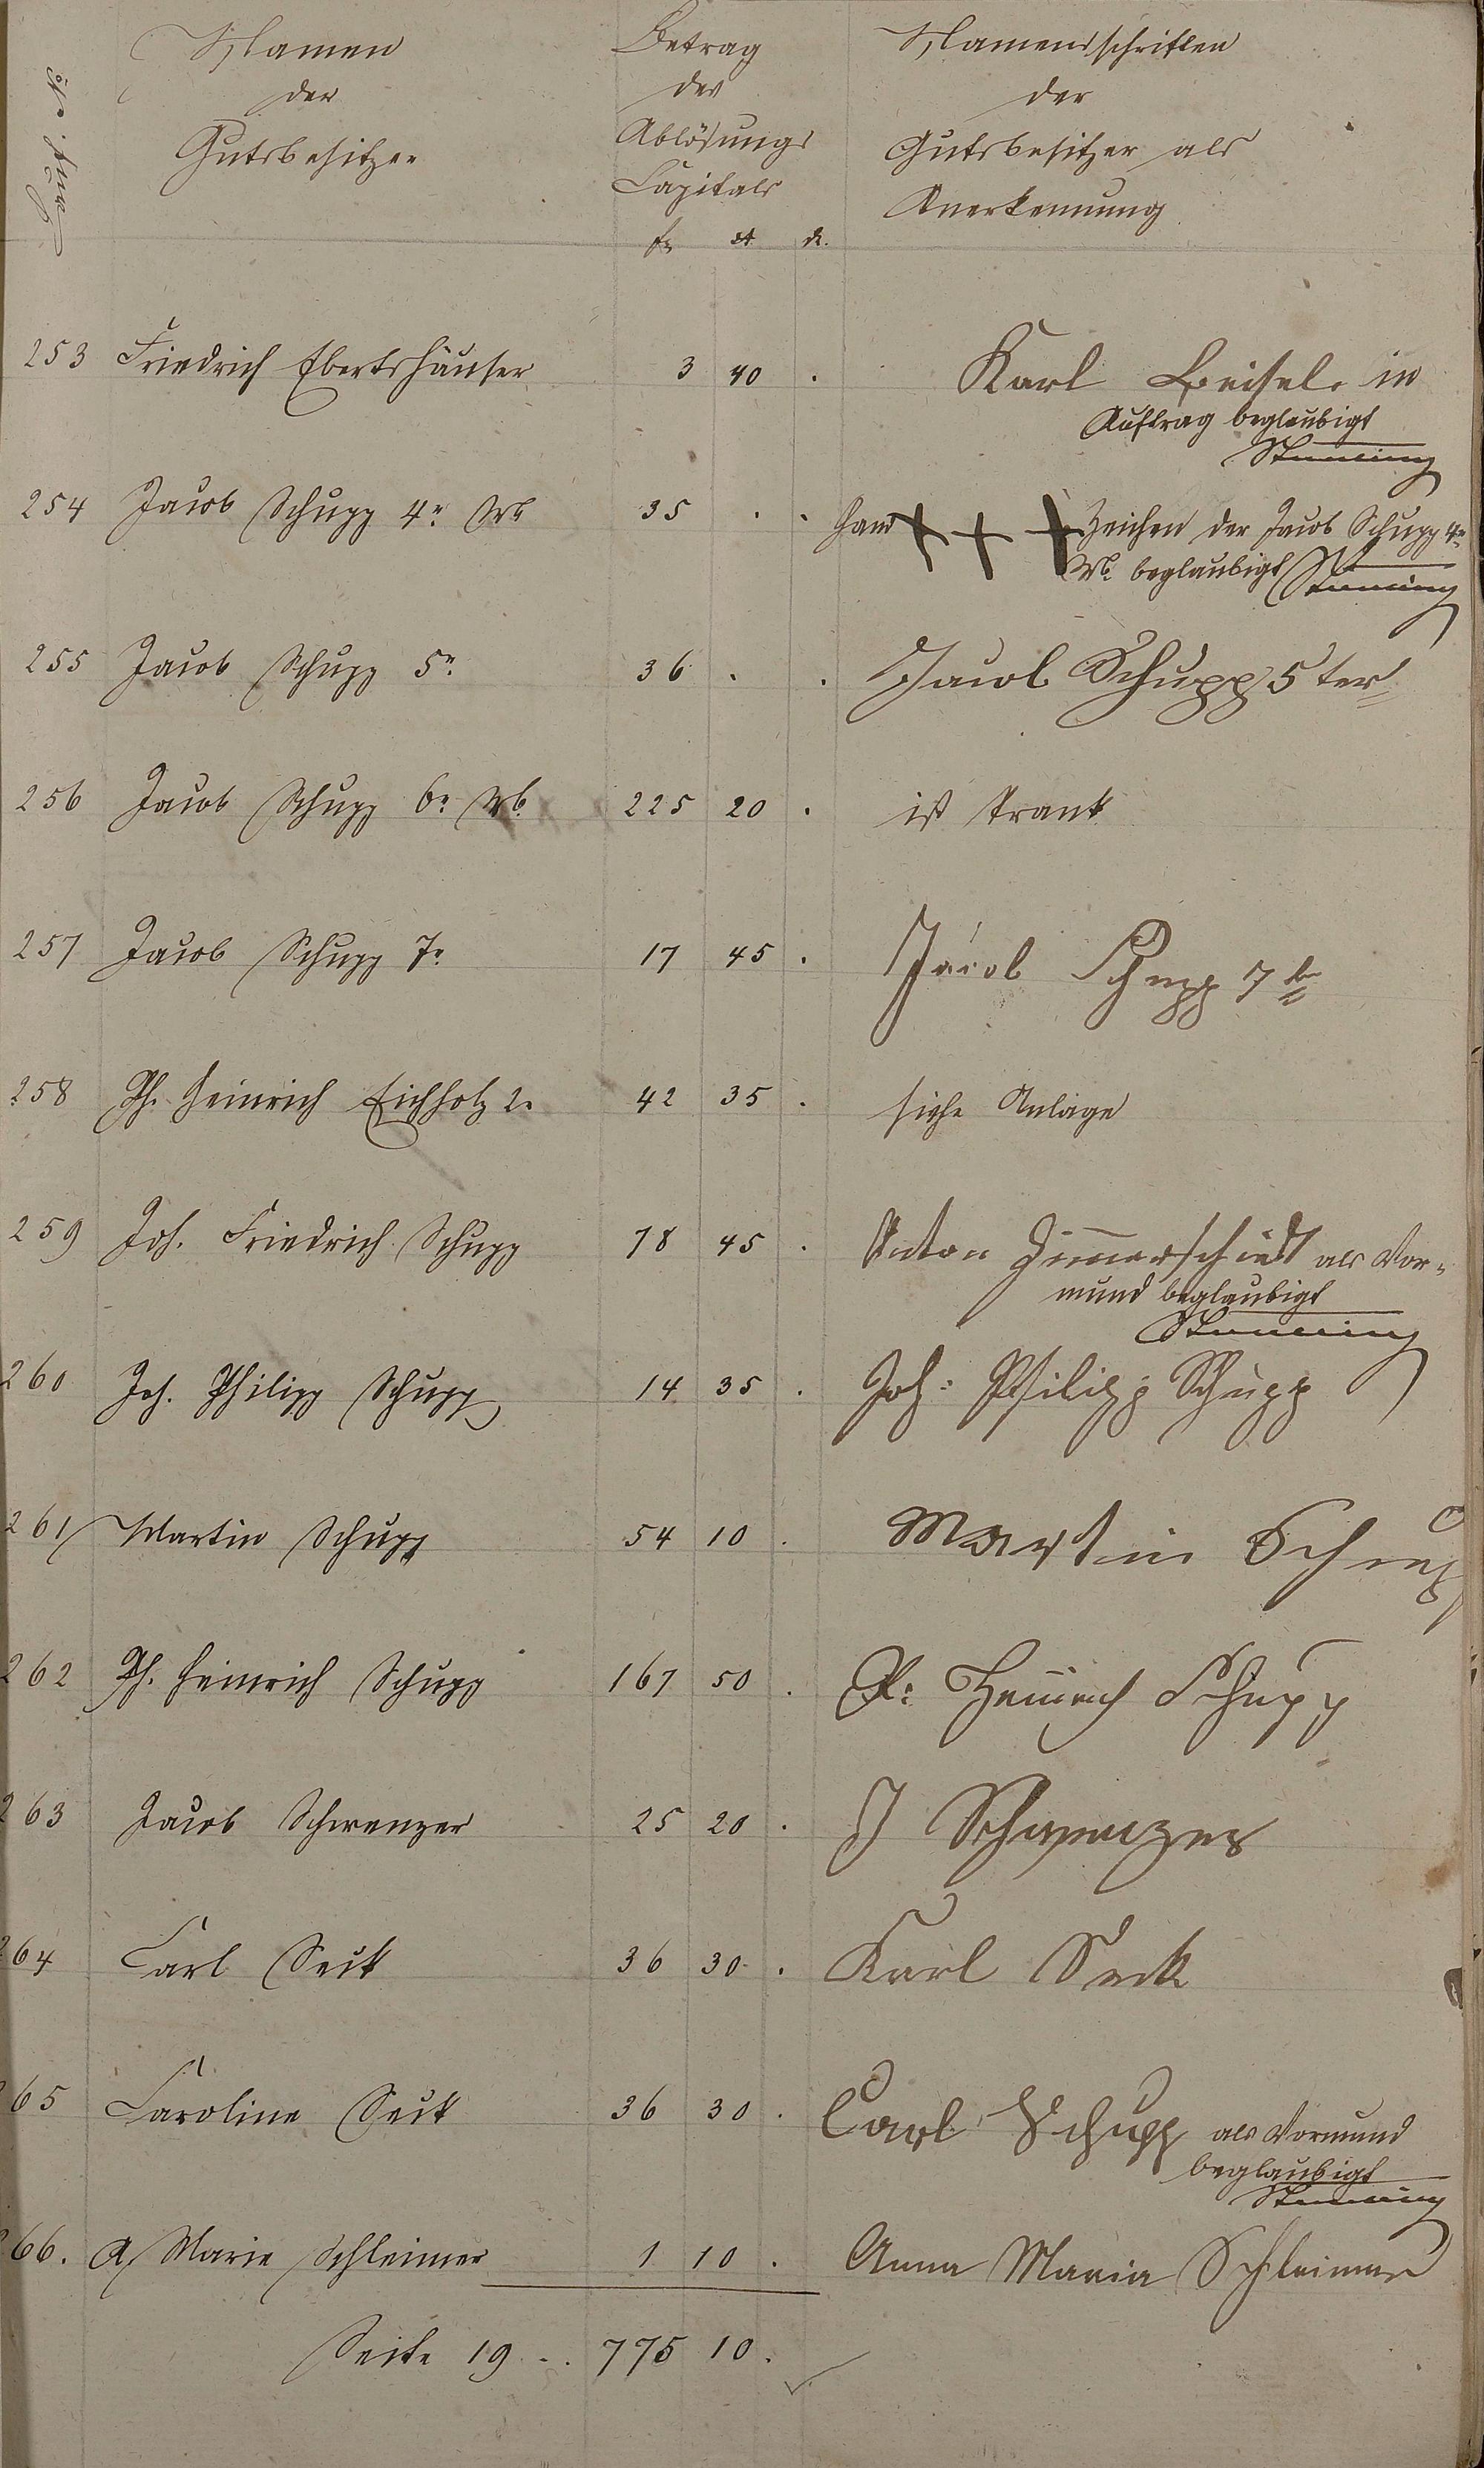 Namen
der
Gutsbesitzer
Betrag
des
Ablösungs
Capitals
fl. xr. d.
Namensschriften
der
Gutsbesitzer als
Anerkennung
253 Friedrich Ebertshäuser 3 40 . Karl Beisel in
Auftrag beglaubigt
254 Jacob Schupp 4r Wb 35 . . Hand +++ Zeichen der Jacob Schupp 4r
Wb. beglaubigt
255 Jacob Schupp 5r 36 . . Jacob Schupp 5ter
256 Jacob Schupp 6r Wb. 225 20 . ist krank
257 Jacob Schupp 7r 17 45 . Jacob Schupp 7ter
258 Ph. Heinrich Eichholz 2r 42 35 . siehe Anlage
259 Joh. Friedrich Schupp 78 45 . Anton Zimerschiedt als Vor-
mund beglaubigt
260 Joh. Philipp Schupp 14 35 . Joh: Philipp Schupp
261 Martin Schupp 54 10 . Martin Schupp
262 Ph. Heinrich Schupp 167 50 . Ph: Heinrich Schupp
263 Jacob Schwenzer 25 20 . J Schwenzer
264 Carl Seck 36 30 . Karl Seck
265 Caroline Seck 36 30 . Carl Schupp als Vormund
beglaubigt
266. A Marie Schleimer 1 10 . Anna Maria Schleimer
Seite 19 . . 775 10 .